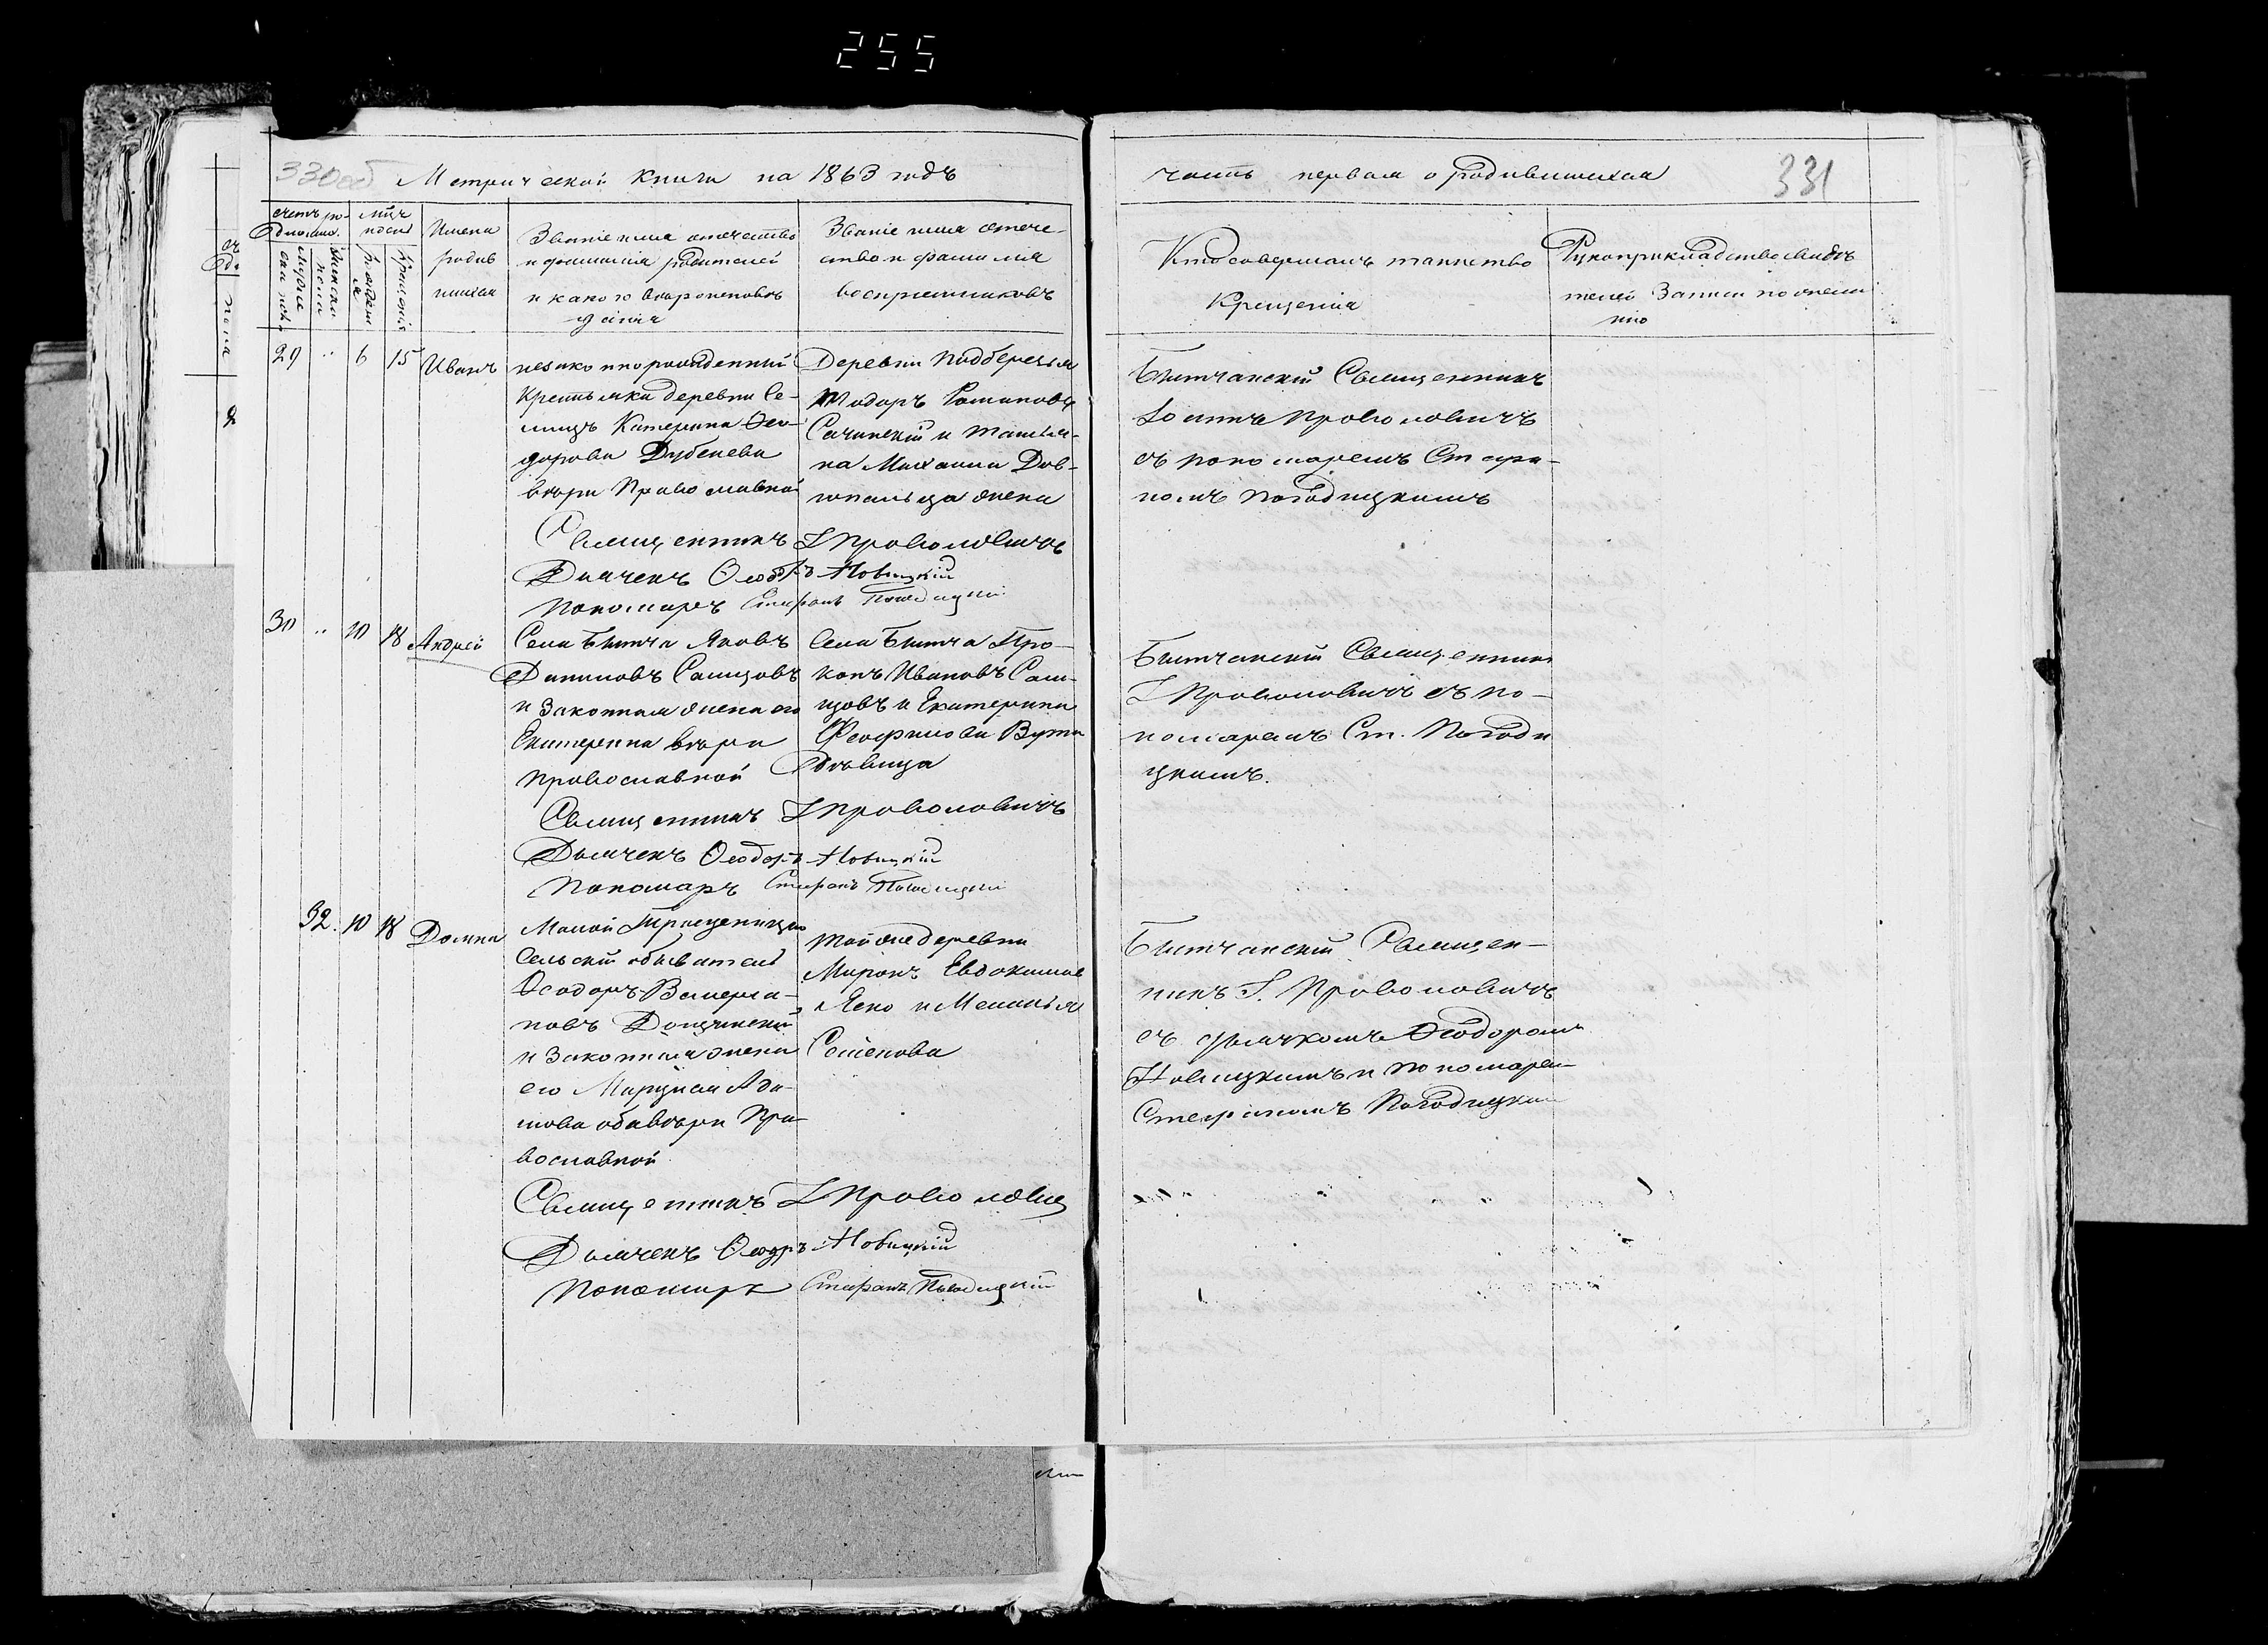 255
330об Метрической Книги на 1863 годъ
часть первая о родившихся 331
счетъ ро-
дивших.
мѣс.
Имена
родив
шихся
Званіе имя отечество
и фамилія родителей
и какого вѣроисповѣ
данія
Званіе имя отече-
ство и фамилія
воспріемниковъ
Кто совершалъ таинство
Крещенія
Рукоприкладство свидѣ
телей Записи по жела
нію
29 .. 6 15 Иванъ
незаконнорожденный
Крестьянка деревни Се-
Катерина Ѳео-
дорова Дубенева
вѣры Православной
Деревни Подберезья
Тодоръ Романовъ
Сачинскій и Татья-
на Жена
Бытчанскій Священникъ
Іоаннъ Проволовичъ
съ пономаремъ Стефа-
номъ Погодицкимъ
Священникъ І Проволовичъ
Дьячекъ Ѳеодръ Новицкій
Пономарь Стефанъ Погодицкій
30 .. 10 18 Андрей
Села Бытча Яковъ
Даниловъ Самцовъ
и Законная жена его
Екатерина вѣры
Православной
Села Бытча Про-
копъ Ивановъ Сам-
цовъ и Екатерина
дѣвица
Бытчанскій Священникъ
І Проволовичъ съ по-
номаремъ Ст. Погоди
цкимъ.
Священникъ І Проволовичъ
Дьячекъ Ѳеодоръ Новицкій
Пономарь Стефанъ Погодицкій
32. 10 18 Домна
Малой
Сельскій обыватель
Ѳеодоръ Валерья-
новъ
и Законная жена
его Марцеля Ада-
мова оба вѣры Пра-
вославной
Той же деревни
Миронъ Евдокимов
Ясно и Меланья
Семенова
Бытчанскій Священ-
никъ І. Проволовичъ
съ дьячкомъ Ѳеодоромъ
Новицкимъ и пономарем
Стефаномъ Погодицким
Священникъ І Проволович
Дьячекъ Ѳеодръ Новицкій
Пономарь Стефанъ Погодицкій